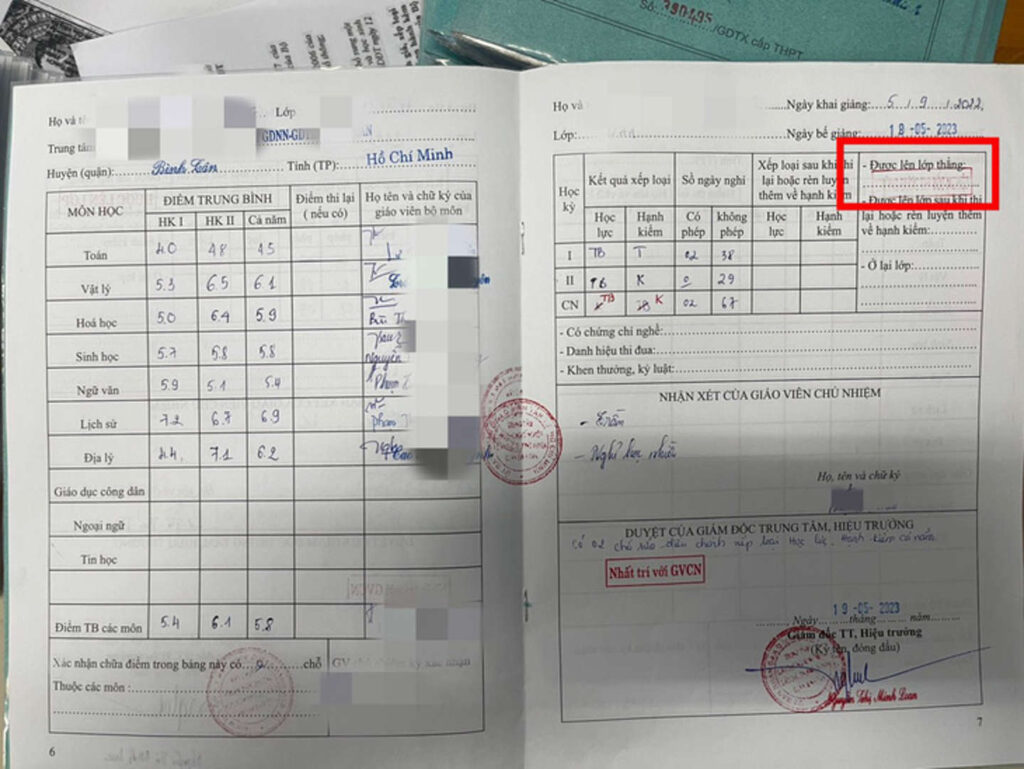 Số: 390495
/GDTX cấp THPT
Họ và tê
Lớp
Trung tâm
GDNN-GD
Huyện (quận): Bình Tân Tỉnh (TP): Hồ Chí Minh
MÔN HỌC
ĐIỂM TRUNG BÌNH
HK I HK II Cả năm
Điểm thi lại
( nếu có)
Họ tên và chữ ký của
giáo viên bộ môn
Toán 4.0 4.8 4.5
Vật lý 5.3 6.5 6.1
Hoá học 5.0 6.4 5.9
Sinh học 5.7 5.8 5.8
Nguyễn
Ngữ văn 5.9 5.1 5.4
Lịch sử 7.2 6.7 6.9
Địa lý 4.4 7.1 6.2
Giáo dục công dân
Ngoại ngữ
Tin học
Điểm TB các môn 5.4 6.1 5.8
Xác nhận chữa điểm trong bảng này có chỗ
GV
xác nhận
Thuộc các môn :
6
Họ và
Ngày khai giảng: 5 / 9 / 2022
Lớp:
Ngày bế giảng: 18 -05- 2023
Học
kỳ
Kết quả xếp loại
Số ngày nghỉ
Xếp loại sau khi thi
lại hoặc rèn luyện
thêm về hạnh kiểm
Học
lực
Hạnh
kiểm
Có
phép
không
phép
Học
lực
Hạnh
kiểm
I TB T 02 38
II TB K 0 29
CN TB K 02 67
- Được lên lớp thẳng:
- Được lên lớp sau khi thi
lại hoặc rèn luyện thêm
về hạnh kiểm:
- Ở lại lớp:
- Có chứng chỉ nghề:
- Danh hiệu thi đua:
- Khen thưởng, kỷ luật:
NHẬN XÉT CỦA GIÁO VIÊN CHỦ NHIỆM
- Nghỉ học nhiều
Họ, tên và chữ ký
DUYỆT CỦA GIÁM ĐỐC TRUNG TÂM, HIỆU TRƯỞNG
Có 02 chỗ sửa điều chỉnh xếp loại Học lực, Hạnh kiểm cả năm.
Nhất trí với GVCN
19 -05- 2023
Ngày tháng năm
Giám đốc TT, Hiệu trưởng
(Ký tên, đóng dấu)
Nguyễn Thị Minh Loan
7